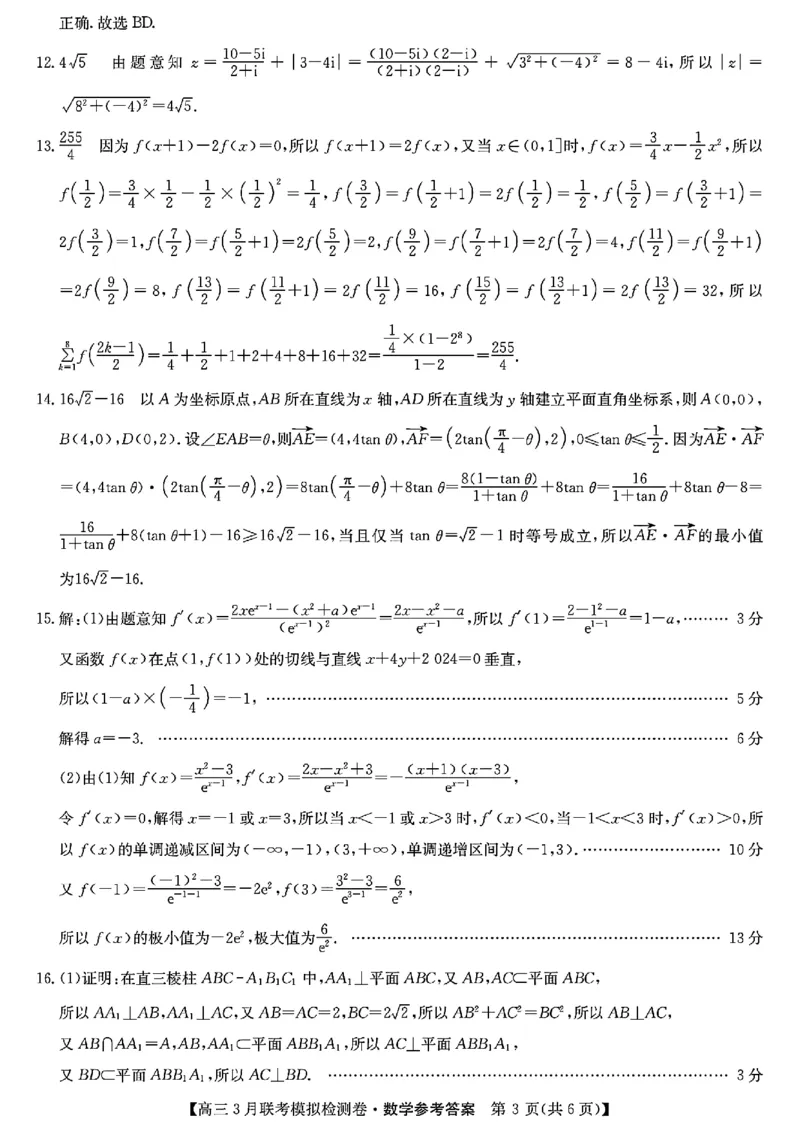 正确.故选 BD.
12. 4√5 由题意知 z = (10−5i)/(2+i) + |3−4i| = ((10−5i)(2−i))/((2+i)(2−i)) + √(3²+(−4)²) = 8−4i, 所以 |z| =
√(8²+(−4)²) = 4√5.
13. 255/4 因为 f(x+1)−2f(x)=0,所以 f(x+1)=2f(x),又当 x∈(0,1]时, f(x)=3/4 x−1/2 x²,所以
f(1/2)=3/4×1/2−1/2×(1/2)²=1/4, f(3/2)=f(1/2+1)=2f(1/2)=1/2, f(5/2)=f(3/2+1)=
2f(3/2)=1, f(7/2)=f(5/2+1)=2f(5/2)=2, f(9/2)=f(7/2+1)=2f(7/2)=4, f(11/2)=f(9/2+1)
=2f(9/2)=8, f(13/2)=f(11/2+1)=2f(11/2)=16, f(15/2)=f(13/2+1)=2f(13/2)=32, 所以
∑_{k=1}^{8} f((2k−1)/2)=1/4+1/2+1+2+4+8+16+32=(1/4×(1−2⁸))/(1−2)=255/4.
14. 16√2−16 以 A 为坐标原点,AB 所在直线为 x 轴,AD 所在直线为 y 轴建立平面直角坐标系,则 A(0,0),
B(4,0),D(0,2).设∠EAB=θ,则 \overrightarrow{AE}=(4,4tan θ), \overrightarrow{AF}=(2tan(π/4−θ),2),0≤tan θ≤1/2.因为 \overrightarrow{AE}·\overrightarrow{AF}
=(4,4tan θ)·(2tan(π/4−θ),2)=8tan(π/4−θ)+8tan θ=(8(1−tan θ))/(1+tan θ)+8tan θ=16/(1+tan θ)+8tan θ−8=
16/(1+tan θ)+8(tan θ+1)−16≥16√2−16,当且仅当 tan θ=√2−1 时等号成立,所以 \overrightarrow{AE}·\overrightarrow{AF}的最小值
为16√2−16.
15. 解:(1)由题意知 f′(x)=(2xe^{x−1}−(x²+a)e^{x−1})/(e^{x−1})²=(2x−x²−a)/e^{x−1},所以 f′(1)=(2−1²−a)/e^{1−1}=1−a,……… 3分
又函数 f(x)在点(1,f(1))处的切线与直线 x+4y+2 024=0 垂直,
所以(1−a)×(−1/4)=−1, ……………………………………………………………………………… 5分
解得 a=−3. ……………………………………………………………………………………………… 6分
(2)由(1)知 f(x)=(x²−3)/e^{x−1}, f′(x)=(2x−x²+3)/e^{x−1}=−((x+1)(x−3))/e^{x−1},
令 f′(x)=0,解得 x=−1 或 x=3,所以当 x<−1 或 x>3 时,f′(x)<0,当−1<x<3 时,f′(x)>0,所
以 f(x)的单调递减区间为(−∞,−1),(3,+∞),单调递增区间为(−1,3). ……………………… 10分
又 f(−1)=((−1)²−3)/e^{−1−1}=−2e², f(3)=(3²−3)/e^{3−1}=6/e²,
所以 f(x)的极小值为−2e²,极大值为6/e². ……………………………………………………………… 13分
16. (1)证明:在直三棱柱 ABC-A₁B₁C₁ 中,AA₁⊥平面 ABC,又 AB,AC⊂平面 ABC,
所以 AA₁⊥AB,AA₁⊥AC,又 AB=AC=2,BC=2√2,所以 AB²+AC²=BC²,所以 AB⊥AC,
又 AB∩AA₁=A,AB,AA₁⊂平面 ABB₁A₁,所以 AC⊥平面 ABB₁A₁,
又 BD⊂平面 ABB₁A₁,所以 AC⊥BD. …………………………………………………………………… 3分
【高三3月联考模拟检测卷·数学参考答案 第3页(共6页)】